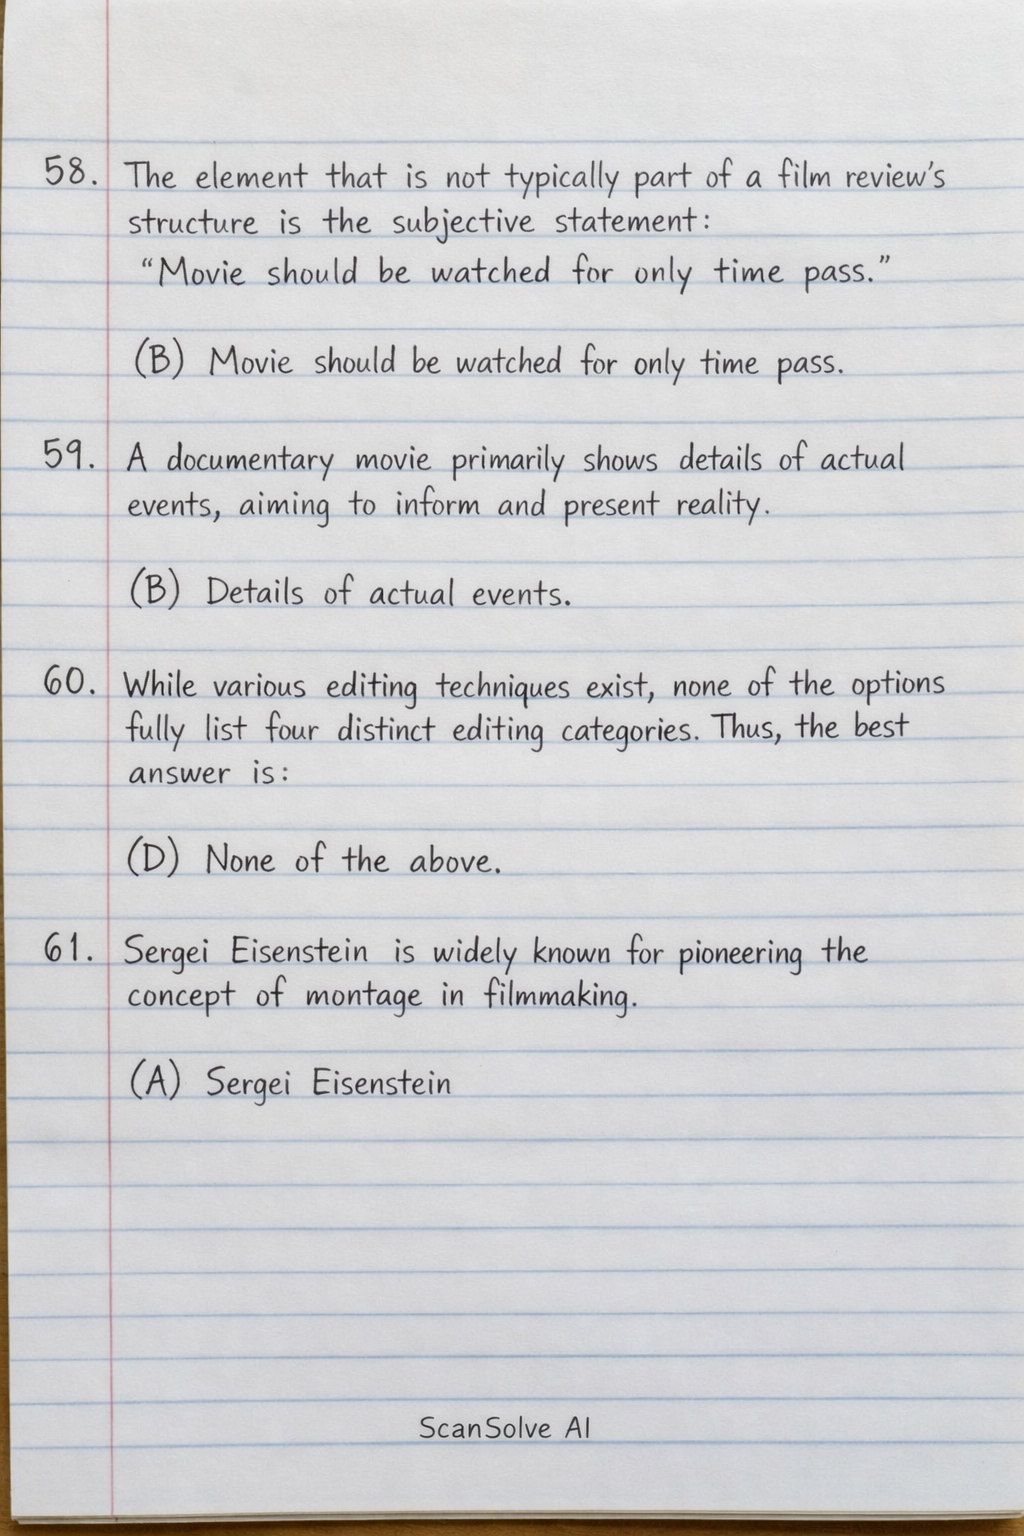 58. The element that is not typically part of a film review's
structure is the subjective statement:
"Movie should be watched for only time pass."
(B) Movie should be watched for only time pass.
59. A documentary movie primarily shows details of actual
events, aiming to inform and present reality.
(B) Details of actual events.
60. While various editing techniques exist, none of the options
fully list four distinct editing categories. Thus, the best
answer is:
(D) None of the above.
61. Sergei Eisenstein is widely known for pioneering the
concept of montage in filmmaking.
(A) Sergei Eisenstein
ScanSolve AI